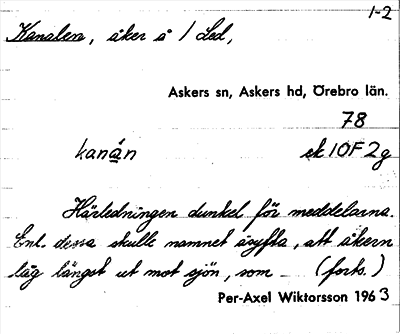 1-2
Kanalen, åker å 1 Led,
Askers sn, Askers hd, Örebro län.
78
kanán ek 10F2g
Härledningen dunkel för meddelarna.
Enl. dessa skulle namnet åsyfta, att åkern
låg längst ut mot sjön, som – (forts.)
Per-Axel Wiktorsson 1963